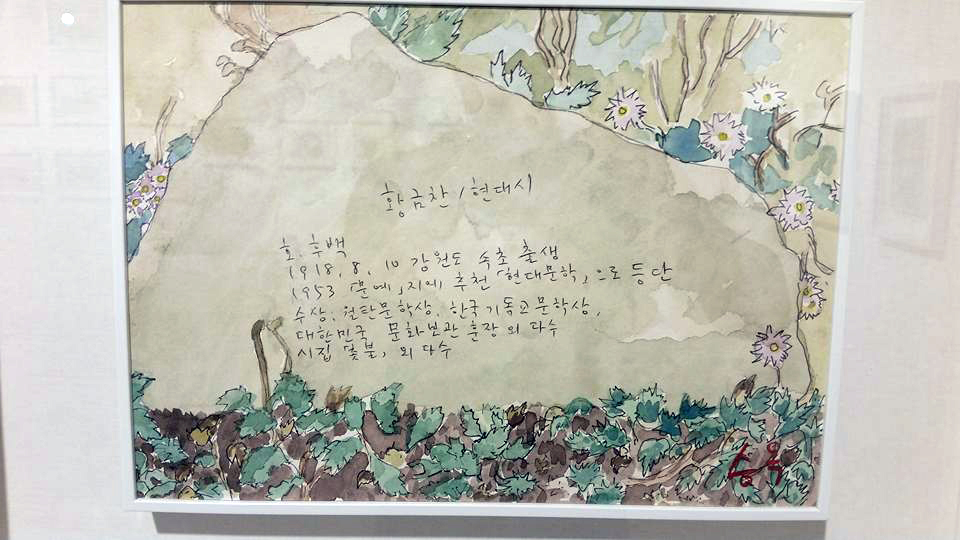 황금찬 / 현대시
호. 후백
1918. 8. 10 강원도 속초 출생
1953 「문예」지에 추천 「현대문학」으로 등단
수상. 월탄문학상. 한국기독교문학상.
대한민국 문화보관훈장 외 다수
시집 몿불, 외 다수
승옥